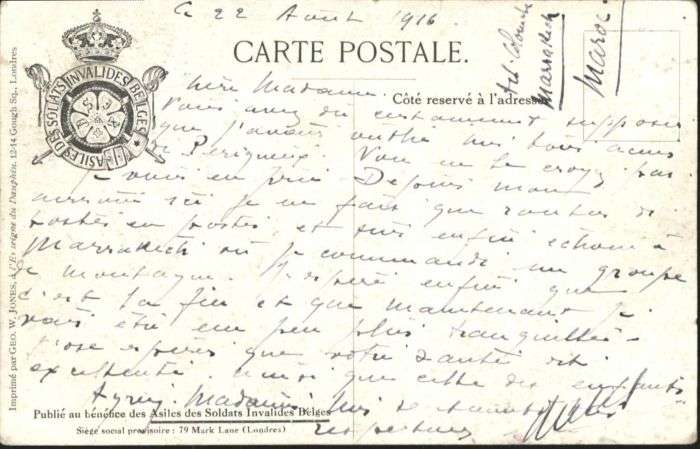 Le 22 Août 1916
CARTE POSTALE.
Côté reservé à l'adresse
Marrakech
Maroc
ASILES DES SOLDATS INVALIDES BELGES
Imprimé par GEO. W. JONES, A l'Enseigne du Dauphin, 12/14 Gough Sq., Londres
Chère Madame
Vous avez du certainement supposer
que j'avais oublié mes bons amis
de Périgueux. Vous ne le croyez pas
je vous en prie. Depuis mon
arrivée ici je ne fais que rouler de
postes en postes, et suis enfin échoué à
Marrakech où je commande un groupe
de montagne. J'espère enfin que
c'est la fin et que maintenant je
vais être un peu plus tranquille.
J'ose espérer que votre santé est
excellente ainsi que celle des enfants
Madame, mes
respectueux
Publié au bénéfice des Asiles des Soldats Invalides Belges
Siège social provisoire : 79 Mark Lane (Londres)